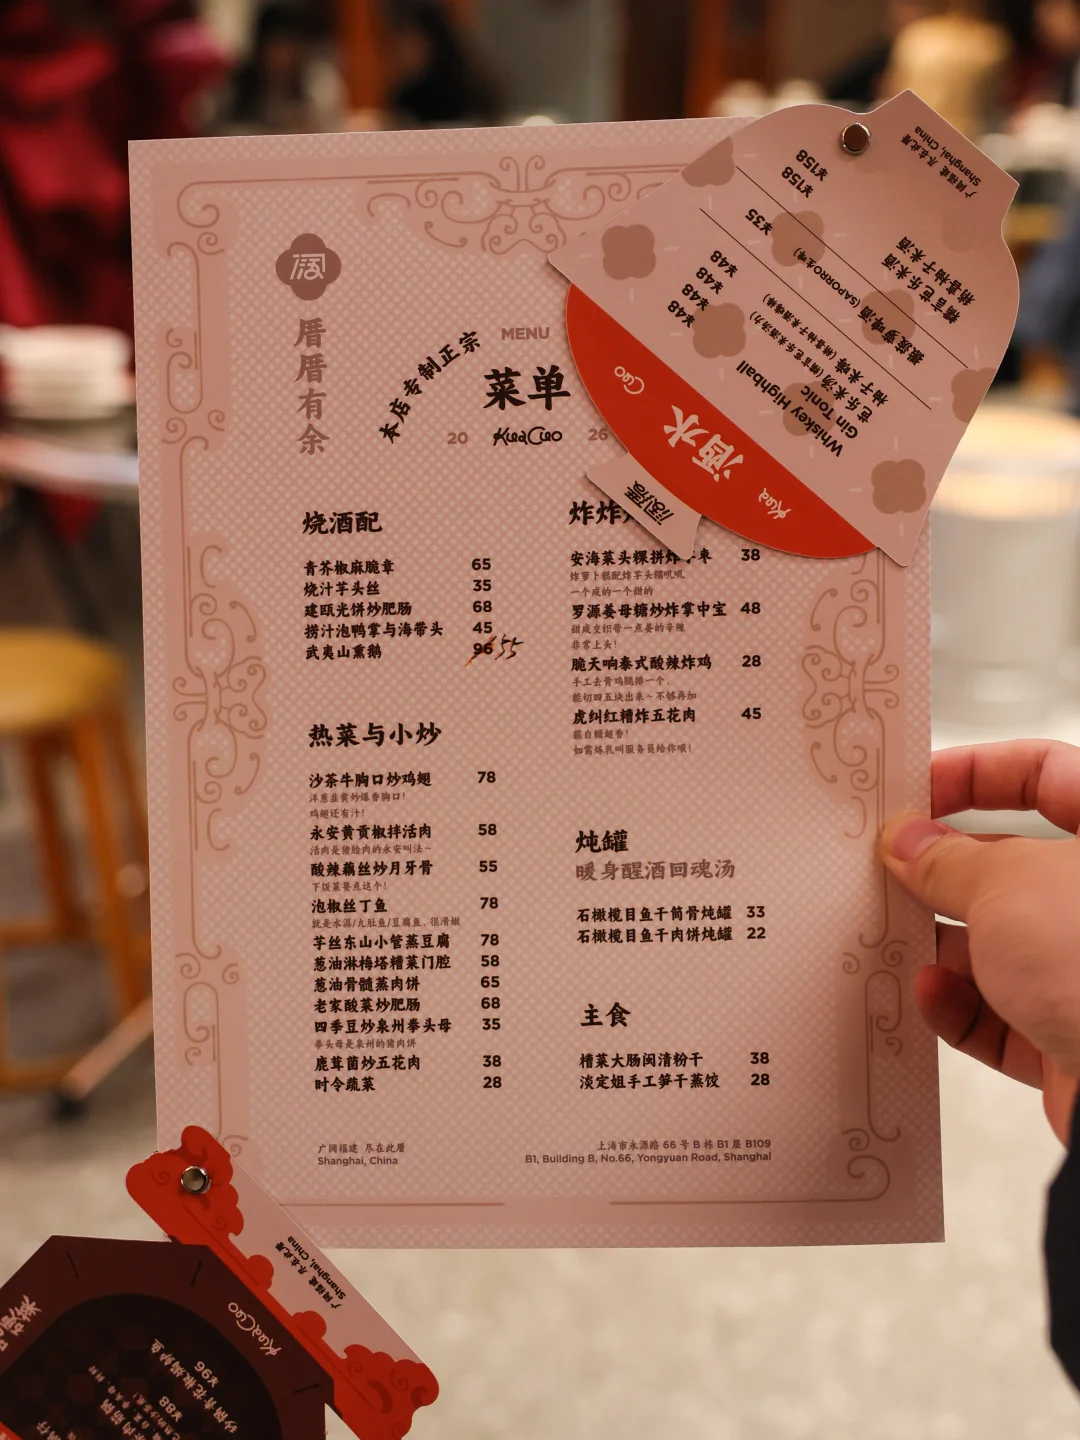 阔
厝厝有余
本店专制正宗
MENU
菜单
20 KuaCuo 26
烧酒配
青芥椒麻脆章 65
烧汁芋头丝 35
建瓯光饼炒肥肠 68
捞汁泡鸭掌与海带头 45
武夷山熏鹅 96 55
热菜与小炒
沙茶牛胸口炒鸡翅 78
洋葱韭黄炒爆香胸口!
鸡翅还有汁!
永安黄贡椒拌活肉 58
活肉是猪脸肉的永安叫法~
酸辣藕丝炒月牙骨 55
下饭菜要点这个!
泡椒丝丁鱼 78
就是水潺/九肚鱼/豆腐鱼, 很滑嫩
芋丝东山小管蒸豆腐 78
葱油淋梅塔糟菜门腔 58
葱油骨髓蒸肉饼 65
老家酸菜炒肥肠 68
四季豆炒泉州拳头母 35
拳头母是泉州的猪肉饼
鹿茸菌炒五花肉 38
时令蔬菜 28
炸炸
安海菜头粿拼炸 枣 38
炸萝卜糕配炸芋头糯叽叽
一个咸的一个甜的
罗源姜母糖炒炸掌中宝 48
甜咸交织带一点姜的辛辣
非常上头!
脆天响泰式酸辣炸鸡 28
手工去骨鸡腿排一个,
能切四五块出来~不够再加
虎纠红糟炸五花肉 45
蘸白糖超香!
如需炼乳叫服务员给你哦!
炖罐
暖身醒酒回魂汤
石橄榄目鱼干筒骨炖罐 33
石橄榄目鱼干肉饼炖罐 22
主食
糟菜大肠闽清粉干 38
淡定姐手工笋干蒸饺 28
广阔福建 尽在此厝
Shanghai, China
上海市永源路 66 号 B 栋 B1 层 B109
B1, Building B, No.66, Yongyuan Road, Shanghai
阔厝
Kua
酒水
Cuo
Whiskey Highball ¥48
Gin Tonic ¥48
芭乐米汤 (糯言芭乐米酒汤力) ¥48
柚子米嗨 (稍香柚子米酒嗨棒)
菠萝啤酒 (SAPPORO生啤) ¥35
糯言芭乐米酒 ¥158
稍香柚子米酒 ¥158
广阔福建 尽在此厝
Shanghai, China
广阔福建 尽在此厝
Shanghai, China
KuaCuo
砂锅青花椒焗鲈鱼 ¥96
¥88